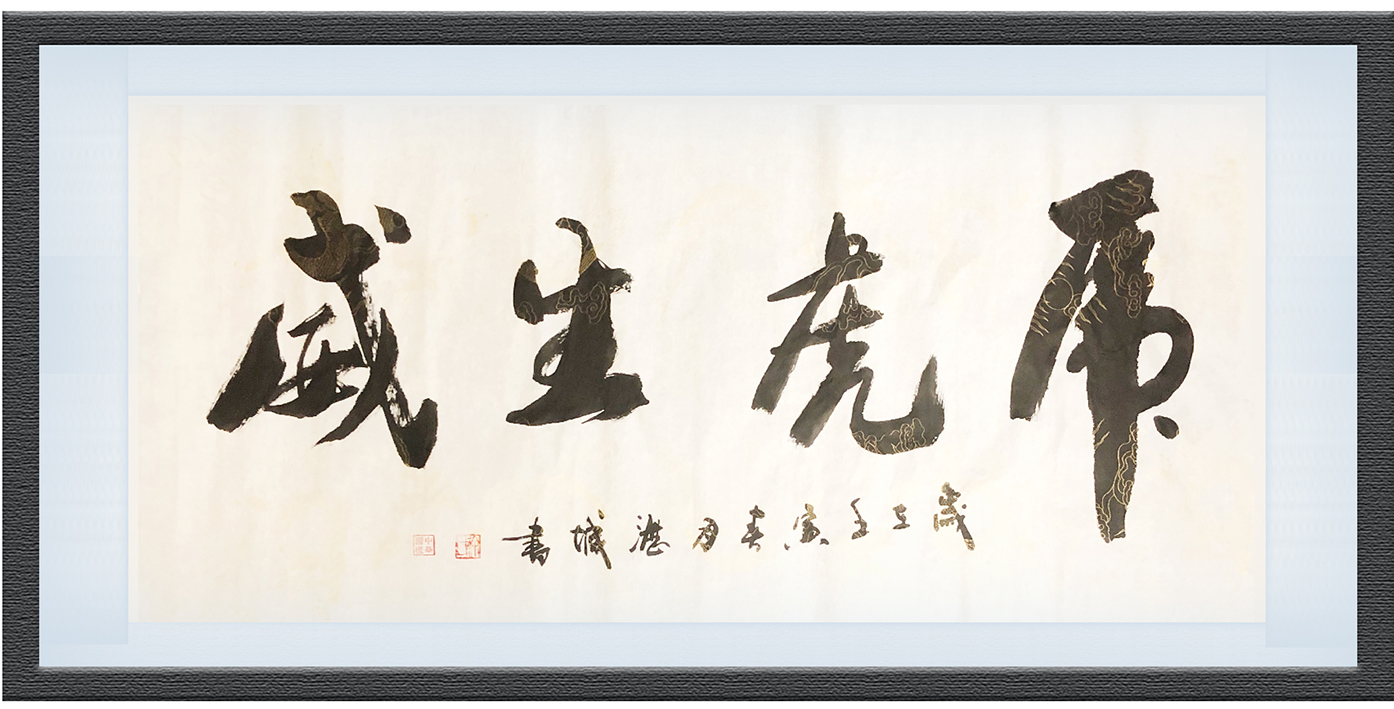 虎虎生威
歲在壬寅春月城書